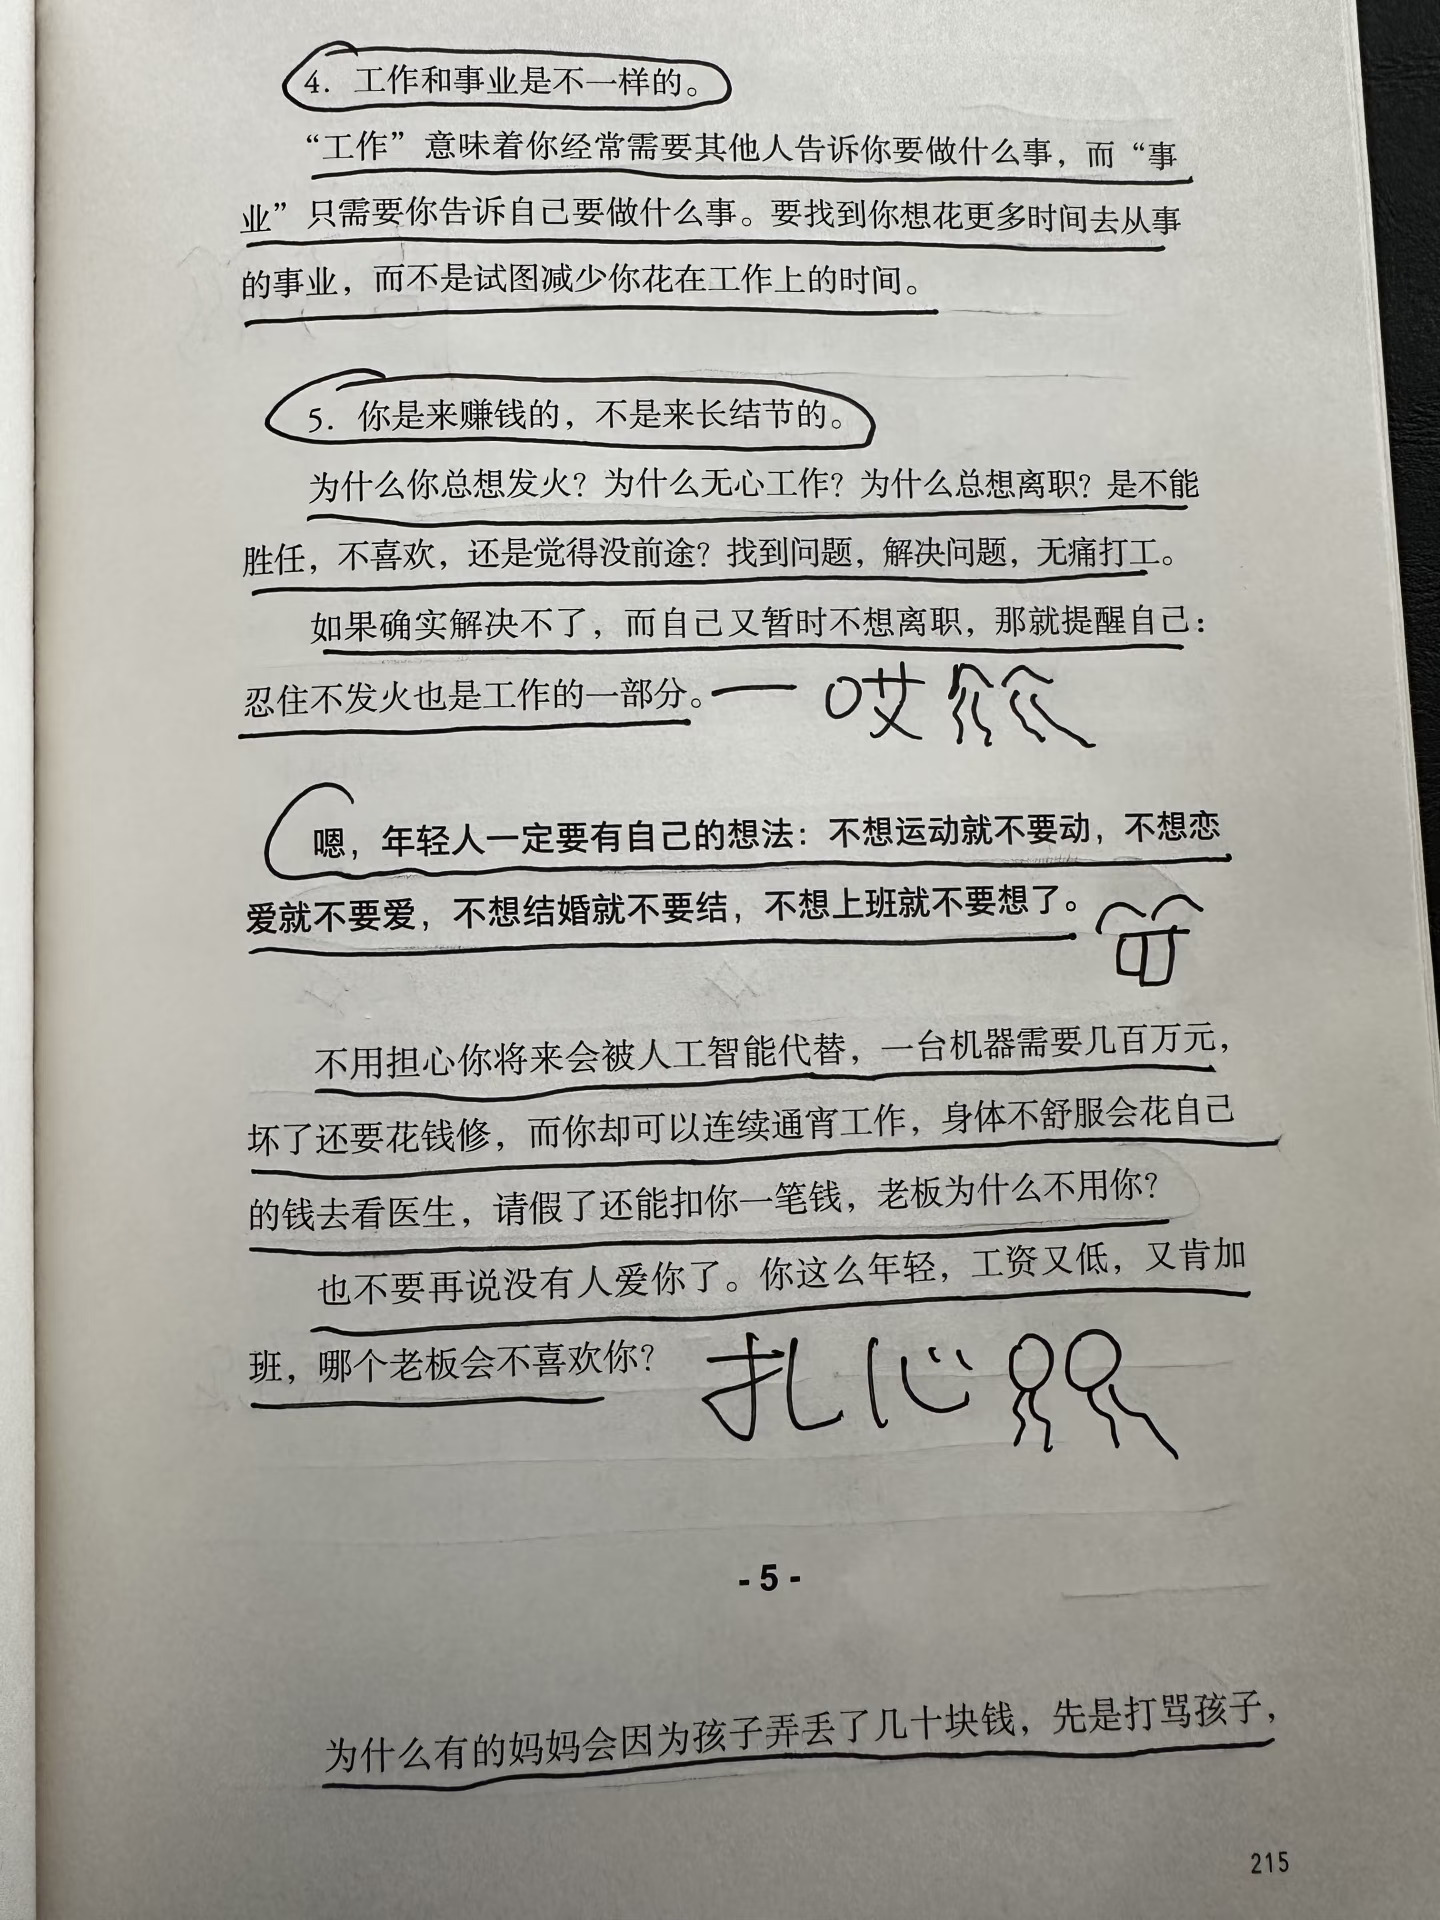 4. 工作和事业是不一样的。
“工作”意味着你经常需要其他人告诉你要做什么事，而“事
业”只需要你告诉自己要做什么事。要找到你想花更多时间去从事
的事业，而不是试图减少你花在工作上的时间。
5. 你是来赚钱的，不是来长结节的。
为什么你总想发火？为什么无心工作？为什么总想离职？是不能
胜任，不喜欢，还是觉得没前途？找到问题，解决问题，无痛打工。
如果确实解决不了，而自己又暂时不想离职，那就提醒自己：
忍住不发火也是工作的一部分。一哎
嗯，年轻人一定要有自己的想法：不想运动就不要动，不想恋
爱就不要爱，不想结婚就不要结，不想上班就不要想了。
不用担心你将来会被人工智能代替，一台机器需要几百万元，
坏了还要花钱修，而你却可以连续通宵工作，身体不舒服会花自己
的钱去看医生，请假了还能扣你一笔钱，老板为什么不用你？
也不要再说没有人爱你了。你这么年轻，工资又低，又肯加
班，哪个老板会不喜欢你？扎心
- 5 -
为什么有的妈妈会因为孩子弄丢了几十块钱，先是打骂孩子，
215